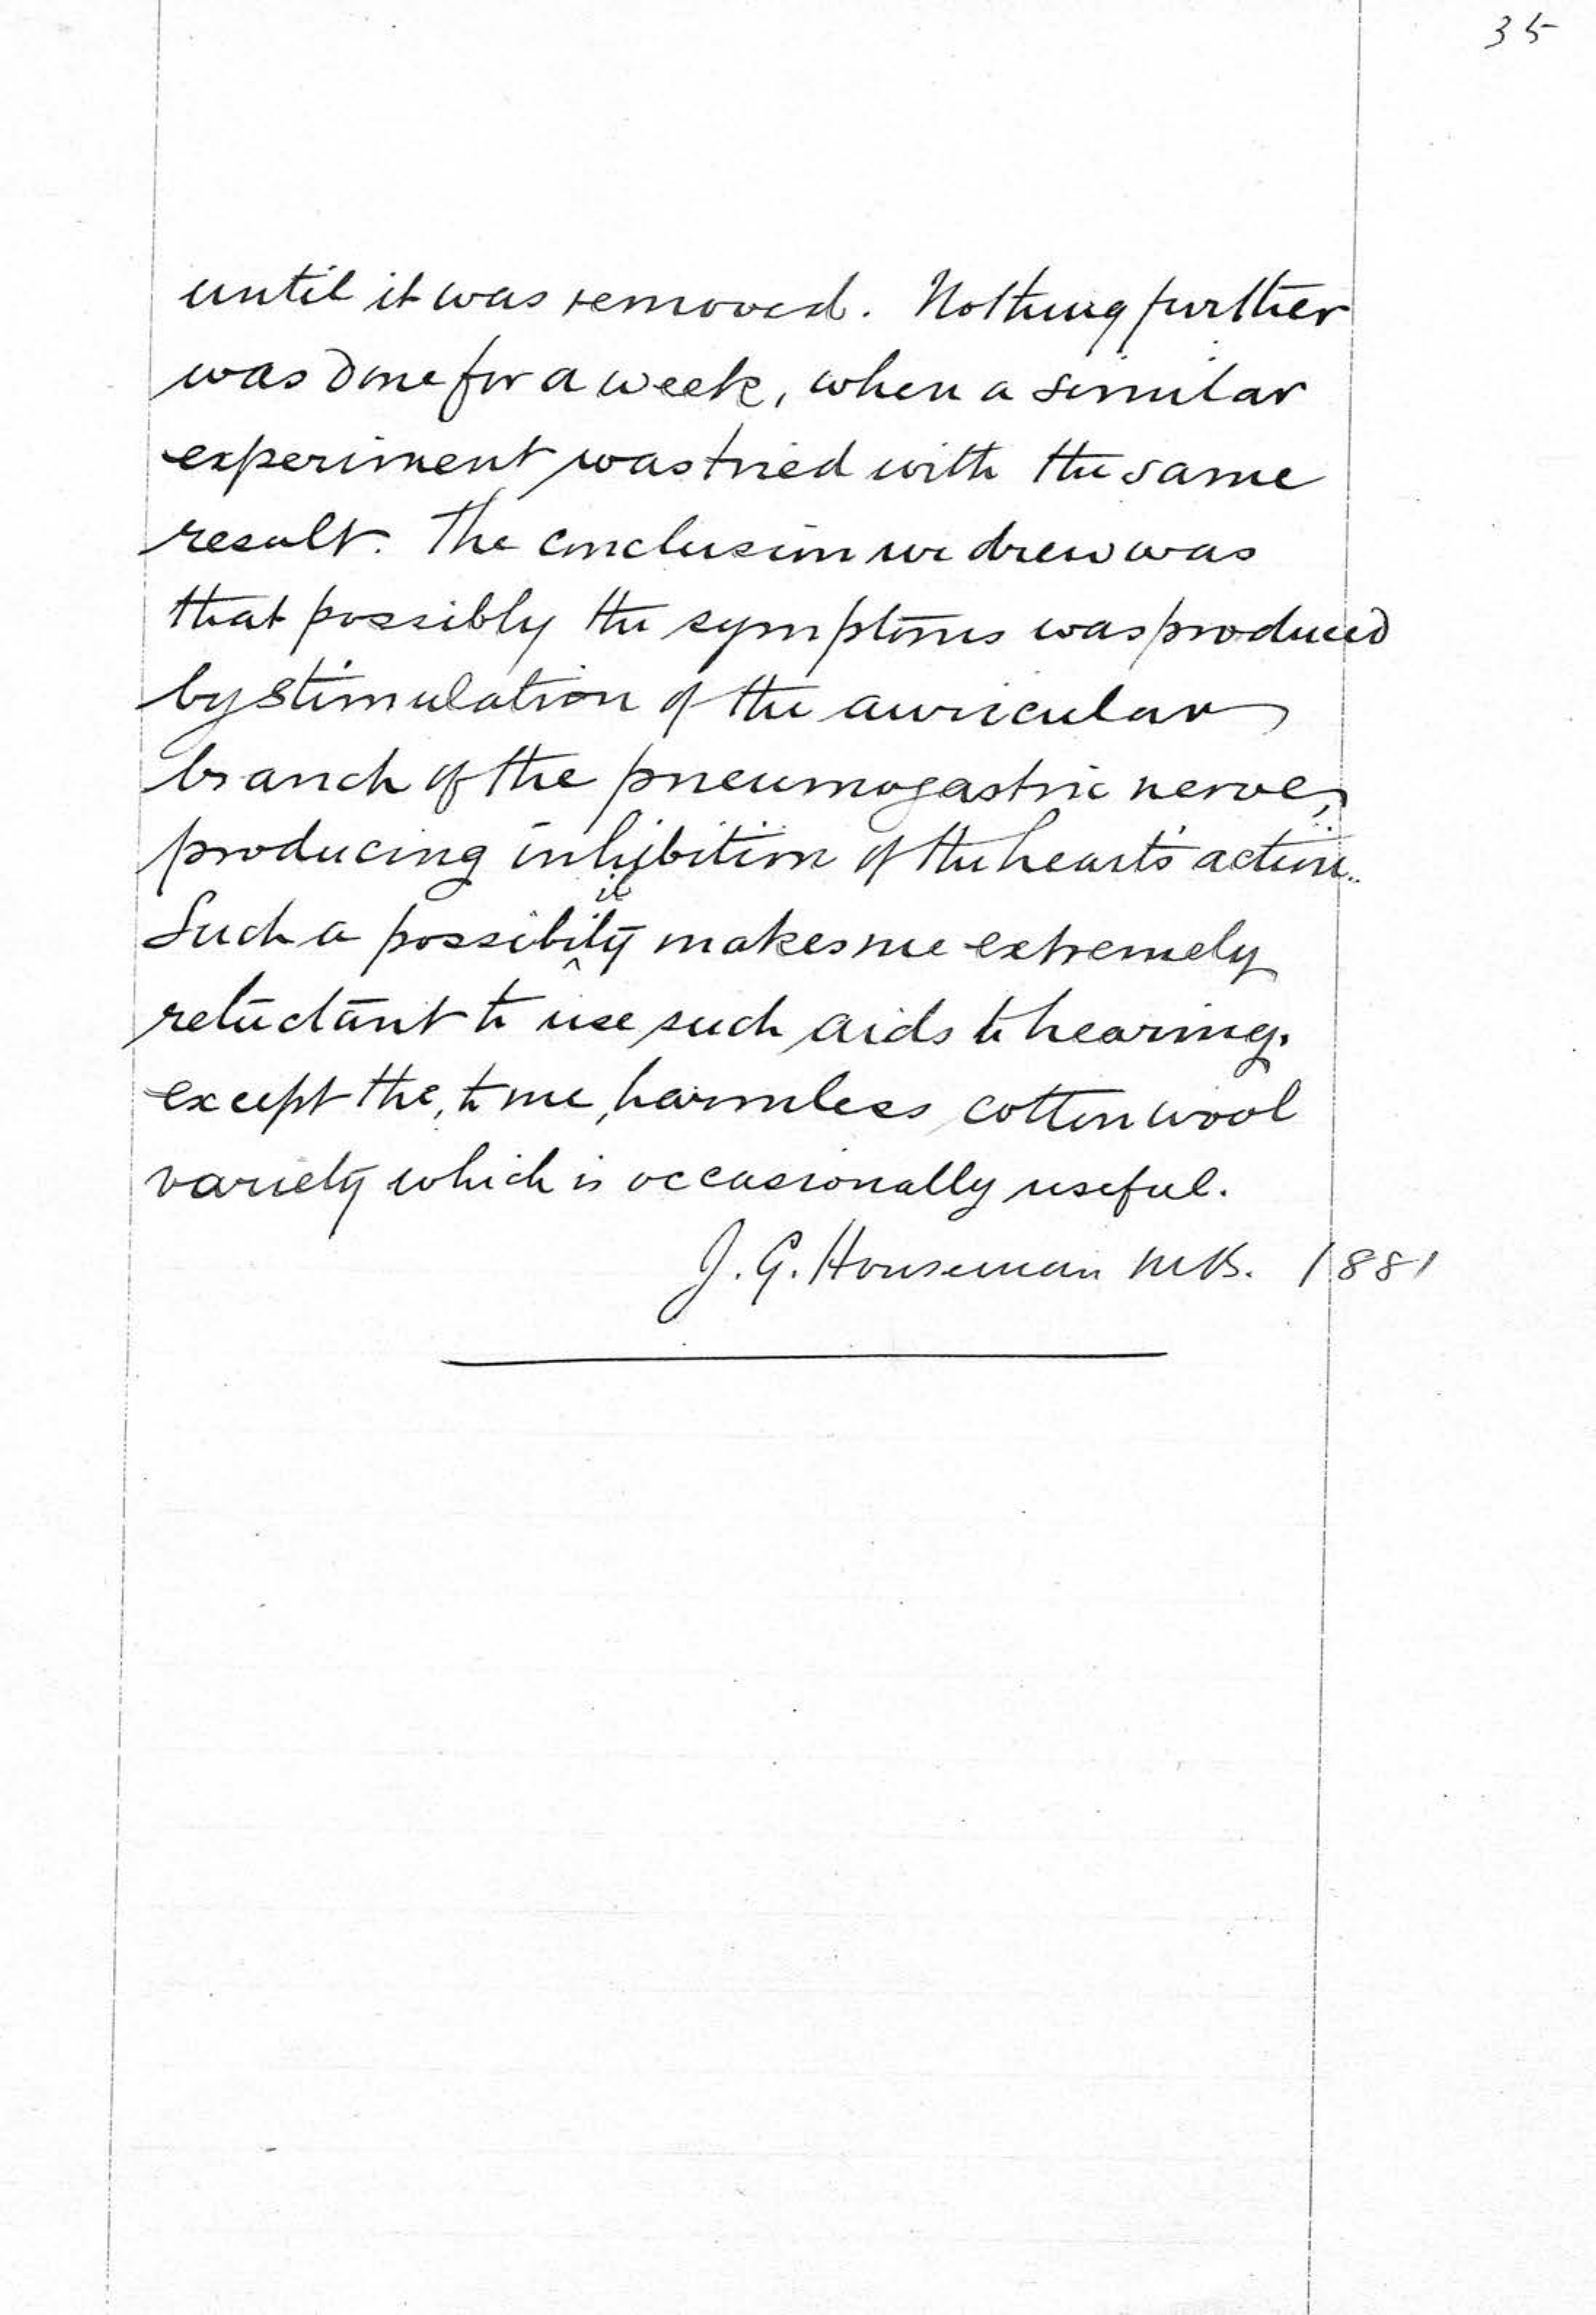 35
until it was removed. Nothing further
was done for a week, when a similar
experiment was tried with the same
result. The conclusion we drew was
that possibly the symptoms was produced
by stimulation of the auricular
branch of the pneumogastric nerve,
producing inhibition of the heart's action.
Such a possibility makes me extremely
reluctant to use such aids to hearing.
except the, to me, harmless cotton wool
variety which is occasionally useful.
J. G. Houseman M.B. 1881